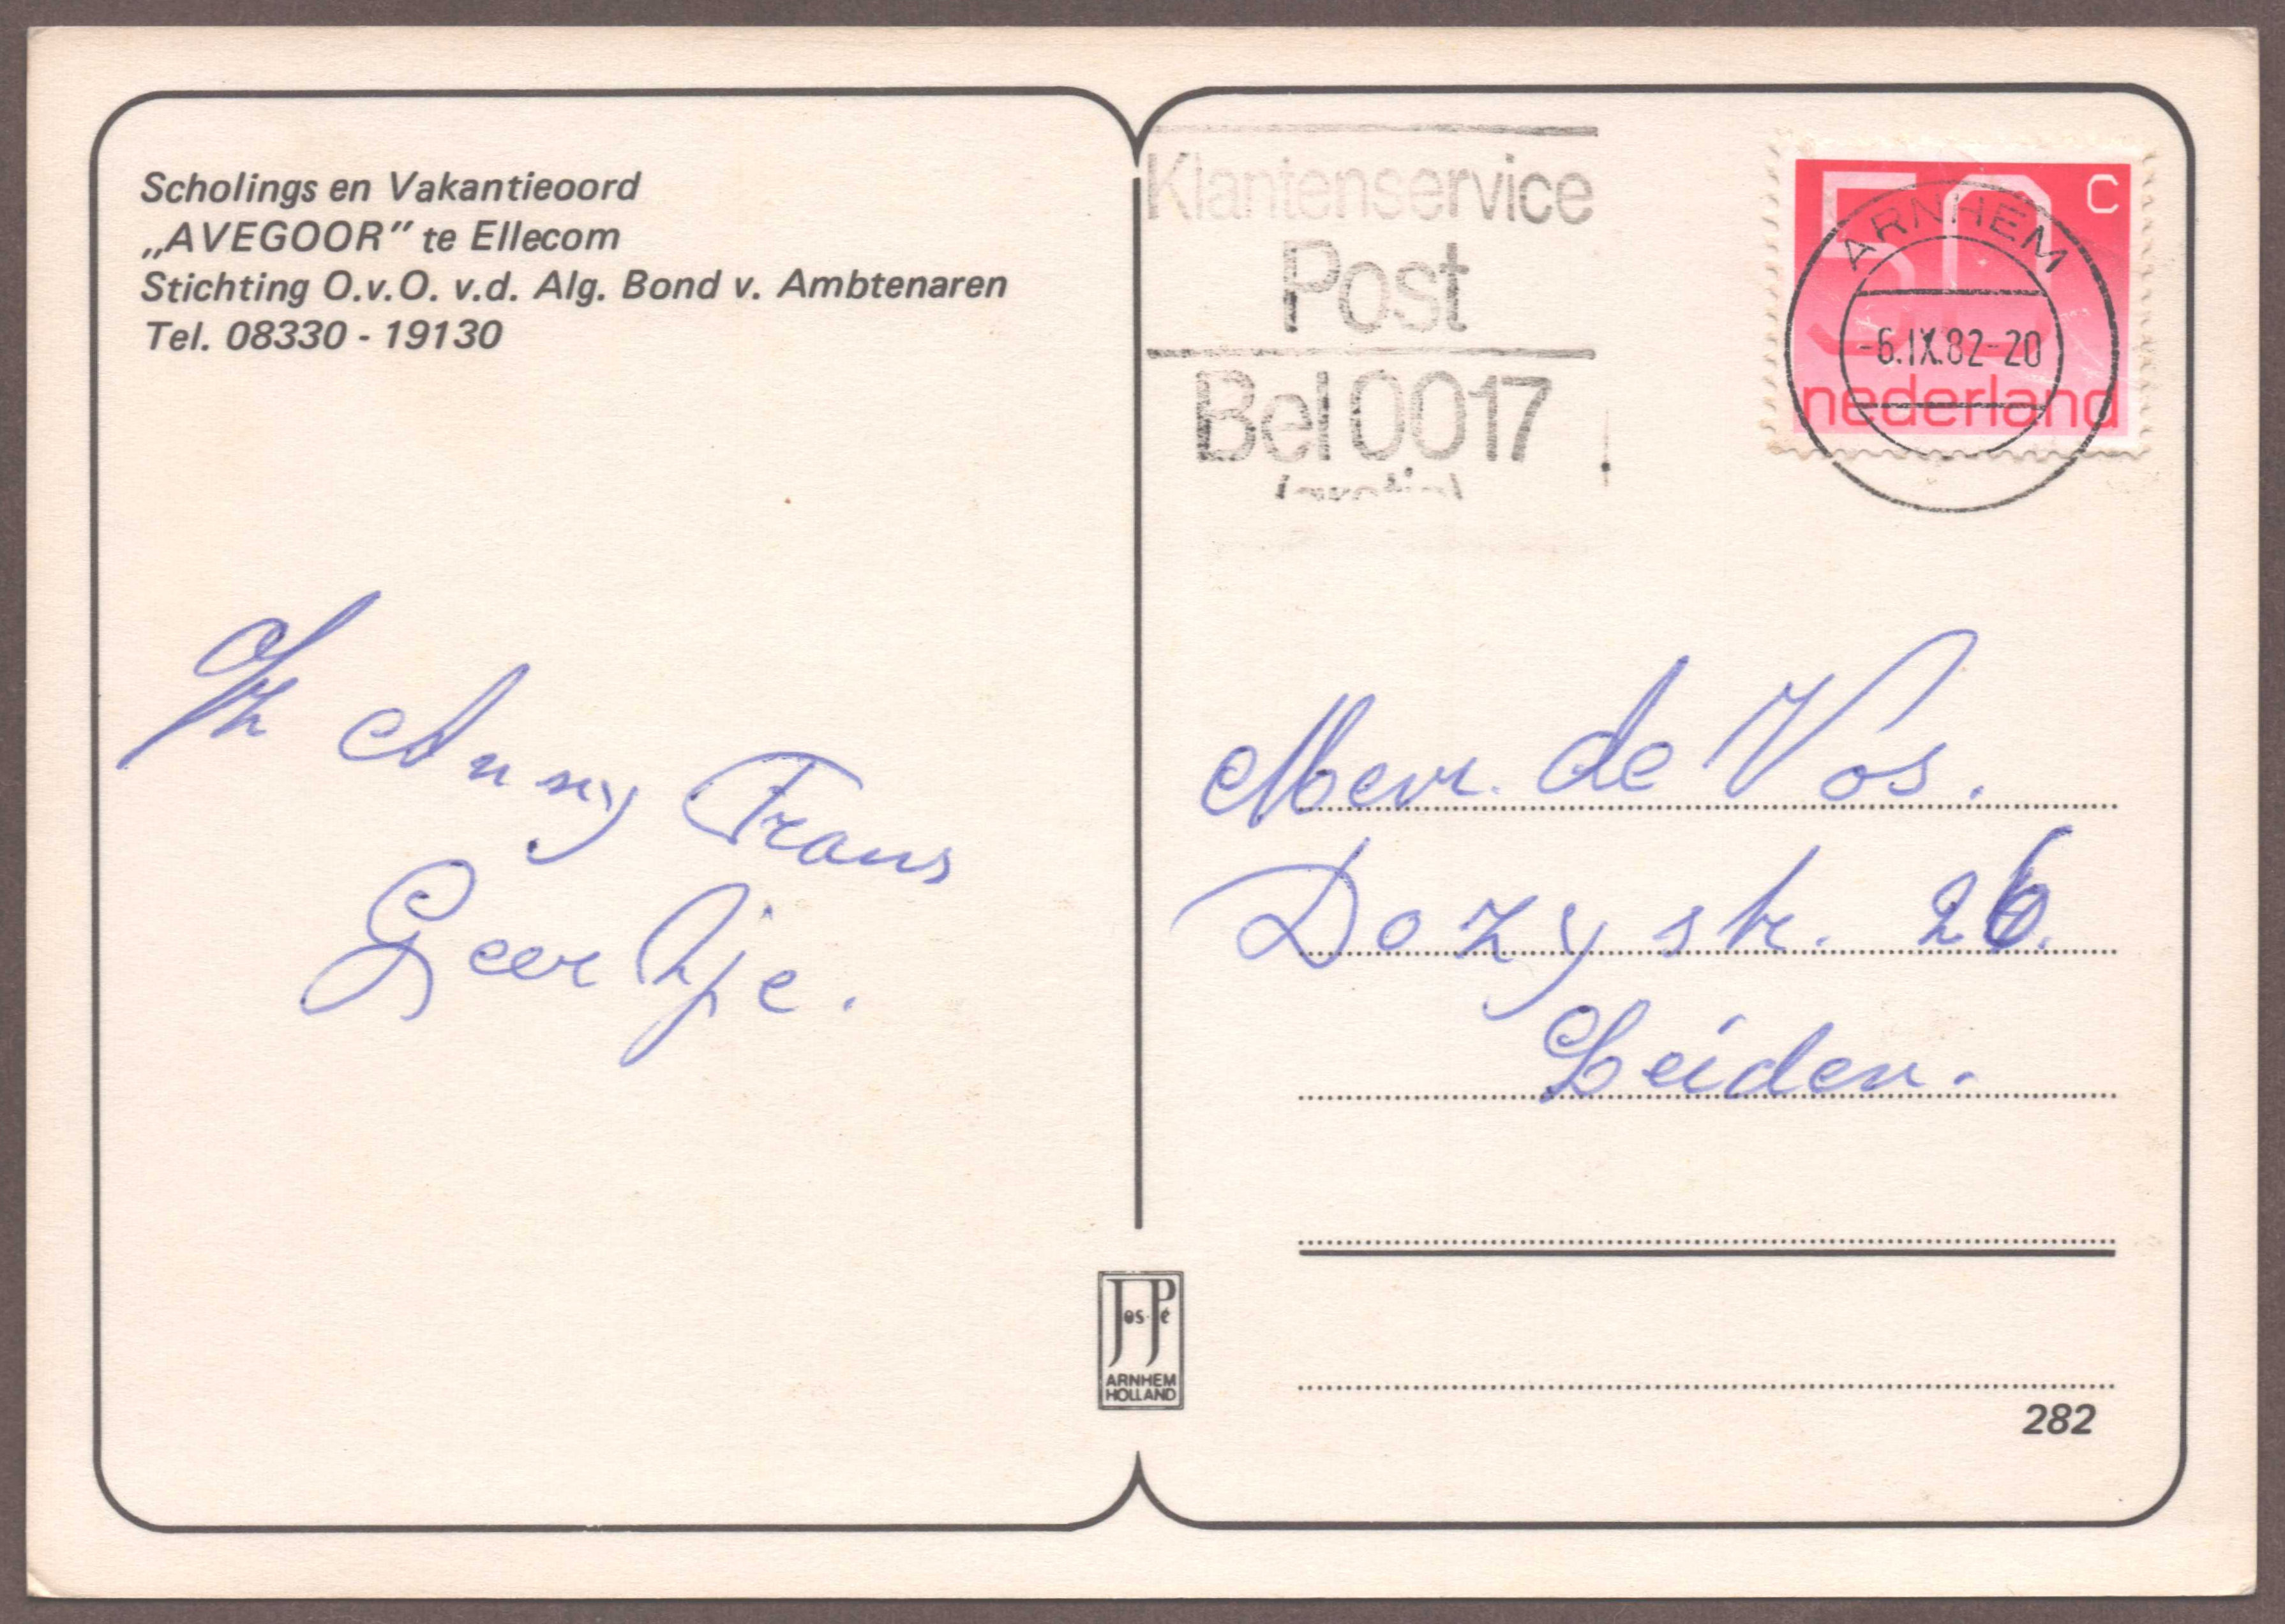 Scholings en Vakantieoord
„AVEGOOR" te Ellecom
Stichting O.v.O. v.d. Alg. Bond v. Ambtenaren
Tel. 08330 - 19130
Klantenservice
Post
Bel 0017
50 C
nederland
ARNHEM
-6.IX.82-20
Anny Frans
Geertje.
Mevr. de Vos.
Dozystr. 26.
Leiden.
Jos-Pé
ARNHEM
HOLLAND
282